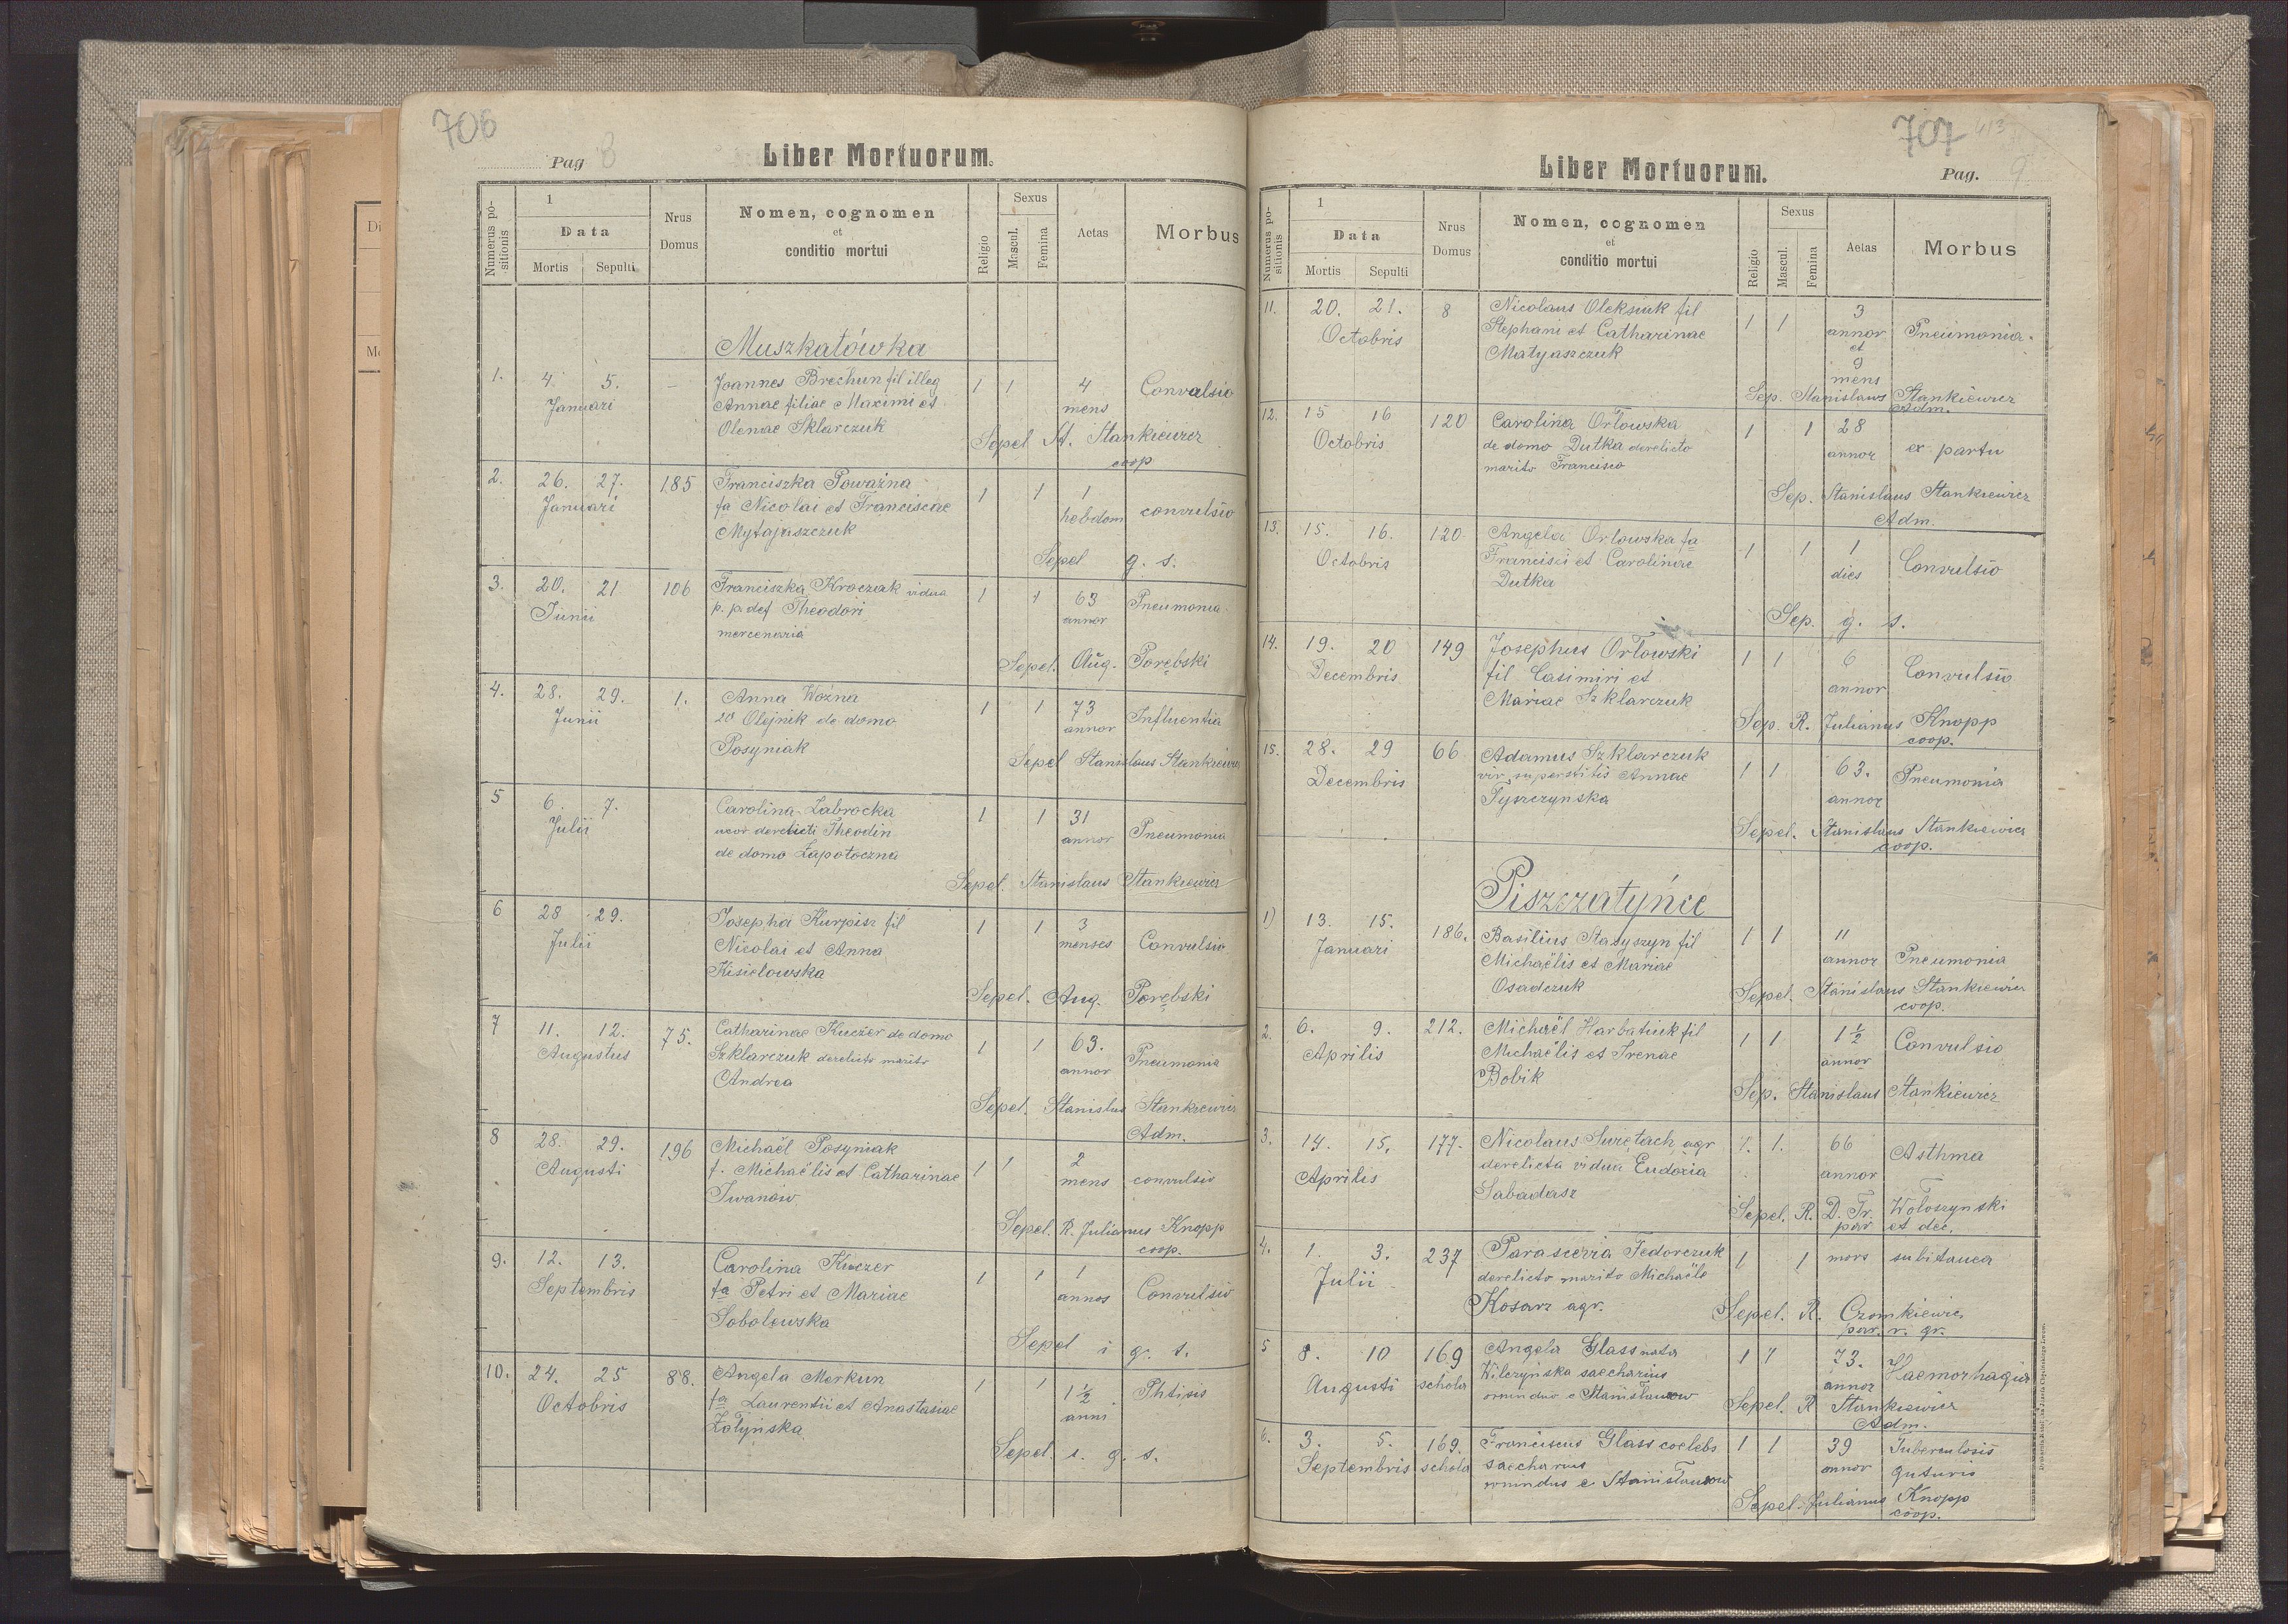 706
Pag 8
Liber Mortuorum.
Numerus positionis
1
Data
Mortis Sepulti
Nrus Domus
Nomen, cognomen
et
conditio mortui
Religio
Sexus
Mascul. Femina
Aetas
Morbus
Muszkatówka
1. 4. 5. — Joannes Brechun fil illeg 1 1 4 Convulsio
Januari Annae filiae Maximi et mens
Olenae Sklarczuk
Sepel St. Stankiewicz
coop
2. 26. 27. 185 Franciszka Poważna 1 1 1 convulsio
Januari fa Nicolai et Franciscae hebdom
Mytajaszczuk
Sepel g. s.
3. 20. 21 106 Franciszka Kroczak vidua 1 1 63 Pneumonia
Junii p. p. def Theodori annor
mercenaria
Sepel. Aug. Porębski
4. 28. 29. 1. Anna Woźna 1 1 73 Influentia
Junii 2o Olejnik de domo annor
Posyniak
Sepel Stanislaus Stankiewicz
5 6. 7. Carolina Zabrocka 1 1 31 Pneumonia
Julii uxor derelicti Theodin annor
de domo Zapotoczna
Sepel. Stanislaus Stankiewicz
6 28 29. Josepha Kurpisz fil 1 1 3 Convulsio
Julii Nicolai et Anna menses
Kisielowska
Sepel. Aug. Porębski
7 11. 12. 75. Catharinae Kuczer de domo 1 1 63. Pneumonia
Augustus Szklarczuk derelicto marito annor
Andrea
Sepel. Stanislus Stankiewicz
Adm.
8 28. 29. 196 Michaël Posyniak 1 1 2 convulsio
Augusti f. Michaëlis et Catharinae mens
Iwanów
Sepel. R. Julianus Knopp
coop.
9. 12. 13. Carolina Kuczer 1 1 1 Convulsio
Septembris fa Petri et Mariae annos
Sobolewska
Sepel i gr. s.
10. 24. 25 88. Angela Merkun 1 1 1½ Phtisis
Octobris fa Laurentii et Anastasiae anni
Żołyńska
Sepel. i. g. s.
707 413
Liber Mortuorum.
Pag. 9
Numerus positionis
1
Data
Mortis Sepulti
Nrus Domus
Nomen, cognomen
et
conditio mortui
Religio
Sexus
Mascul. Femina
Aetas
Morbus
11. 20. 21. 8 Nicolaus Oleksiuk fil 1 1 3 Pneumonia
Octobris Stephani et Catharinae annor
Matyaszczuk et
9
mens
Sep. Stanislaus Stankiewicz
Adm.
12. 15 16 120 Carolina Orłowska 1 1 28 ex partu
Octobris de domo Dutka derelicto annor
marito Francisco
Sep. Stanislaus Stankiewicz
Adm.
13. 15. 16. 120. Angela Orlowska fa 1 1 1 Convulsio
Octobris Francisci et Carolinae dies
Dutka
Sep. g. s.
14. 19. 20 149 Josephus Orłowski 1 1 6 Convulsio
Decembris fil Casimiri et annor
Mariae Szklarczuk
Sep. R. Julianus Knopp
coop.
15. 28. 29 66 Adamus Szklarczuk 1 1 63. Pneumonia
Decembris vir superstitis Annae annor
Tyszczynska
Sepel. Stanislaus Stankiewicz
coop.
Piszczatyńce
1) 13. 15. 186. Basilius Stasyszyn fil 1 1 11 Pneumonia
Januari Michaëlis et Mariae annor
Osadczuk
Sepel. Stanislaus Stankiewicz
coop.
2. 6. 9. 212. Michaël Harbatiuk fil 1 1 1½ Convulsio
Aprilis Michaëlis et Irenae annor
Bobik
Sep. Stanislaus Stankiewicz
3. 14. 15. 177. Nicolaus Swiętach agr 1. 1. 66 Asthma
Aprilis derelicta vidua Eudoxia annor
Sabadasz
Sepel. R. D. Fr. Wołoszynski
par et dec.
4. 1. 3. 237 Parascevia Fedorczuk 1 1 mors subitanea
Julii derelicto marito Michaële
Kosarz agr.
Sepel. R. Czomkiewicz
par. r. gr.
5 8. 10 169 Angela Glass nata 1 1 73. Haemorhagia
Augusti schola Wilczyńska annor
oriunduo e Stanisławow
Sepel. R Stankiewicz
Adm.
6. 3. 5. 169. Franciscus Glass coelebs 1 1 39 Tuberculosis
Septembris schola annor guturis
oriundus e Stanisławow
Sepel. Julianus Knopp
coop.